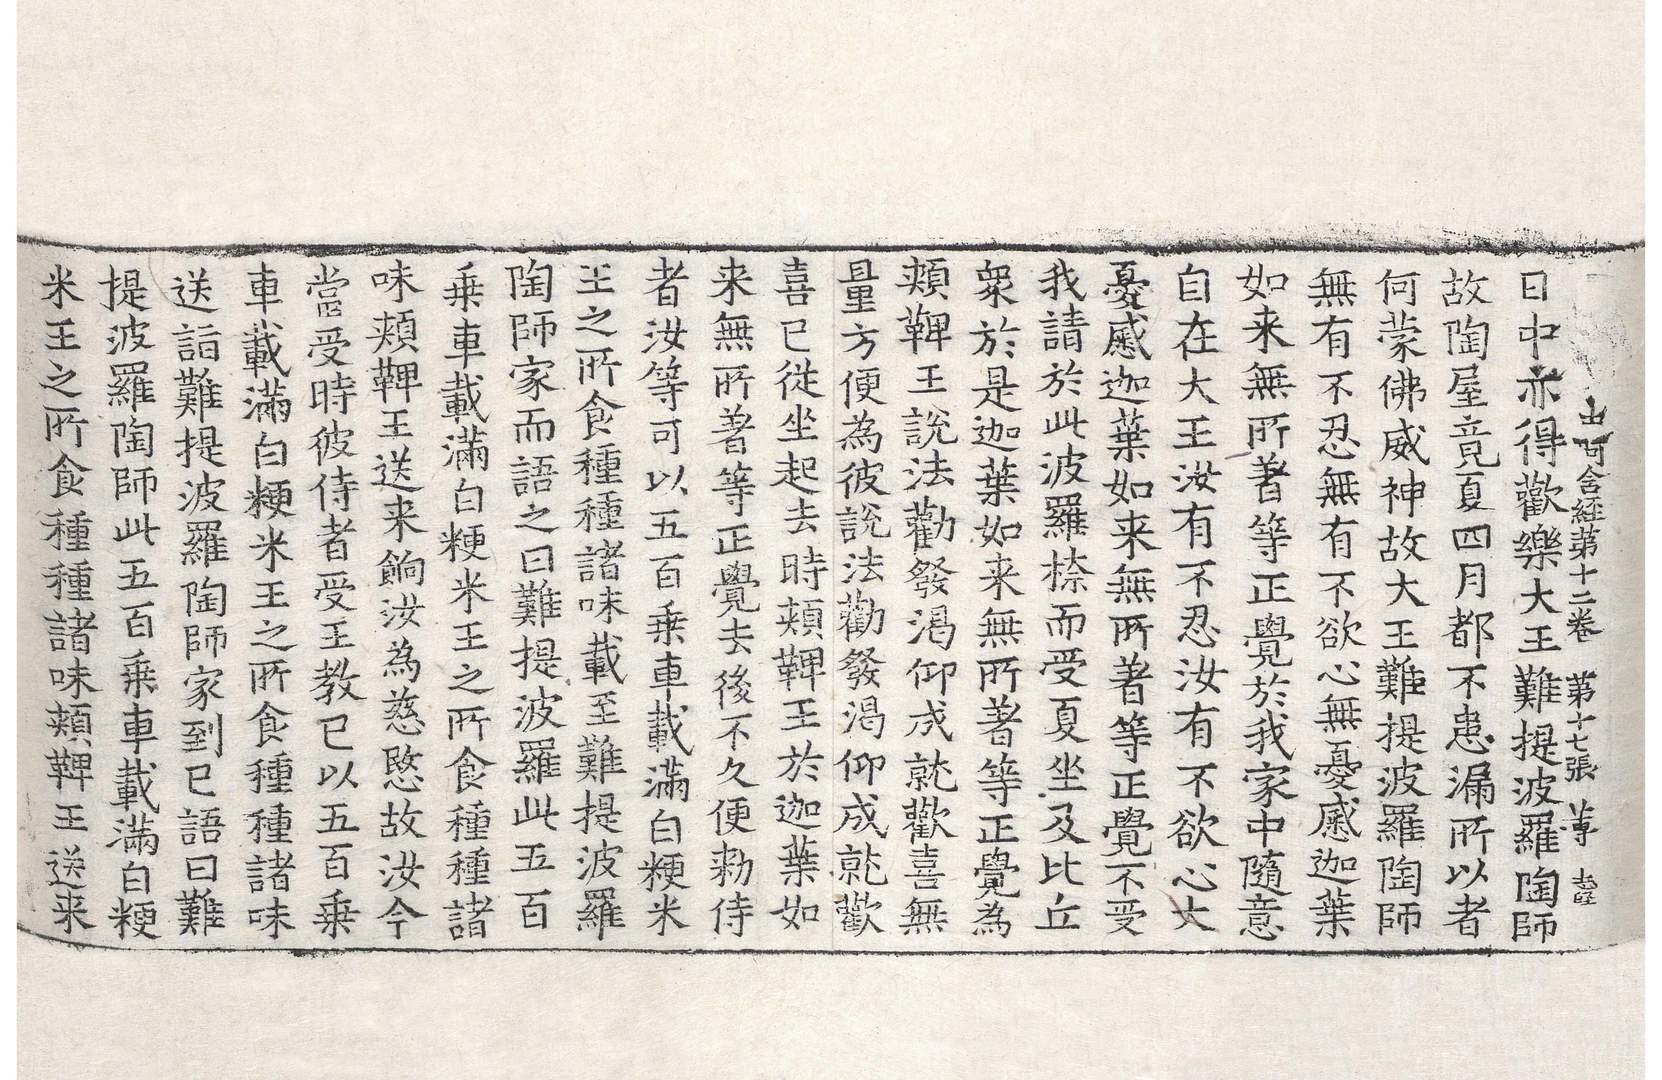 中阿含經第十二卷　第十七張　尊
日中亦得歡樂大王難提波羅陶師
故陶屋竟夏四月都不患漏所以者
何蒙佛威神故大王難提波羅陶師
無有不忍無有不欲心無憂慼迦葉
如来無所著等正覺於我家中隨意
自在大王汝有不忍汝有不欲心大
憂慼迦葉如来無所著等正覺不受
我請於此波羅㮈而受夏坐及比丘
衆於是迦葉如来無所著等正覺為
頰鞞王說法勸發渴仰成就歡喜無
量方便為彼說法勸發渴仰成就歡
喜已從坐起去時頰鞞王於迦葉如
来無所著等正覺去後不久便勑侍
者汝等可以五百乗車載滿白粳米
王之所食種種諸味載至難提波羅
陶師家而語之曰難提波羅此五百
乗車載滿白粳米王之所食種種諸
味頰鞞王送来餉汝為慈愍故汝今
當受時彼侍者受王教已以五百乗
車載滿白粳米王之所食種種諸味
送詣難提波羅陶師家到已語曰難
提波羅陶師此五百乗車載滿白粳
米王之所食種種諸味頰鞞王送来